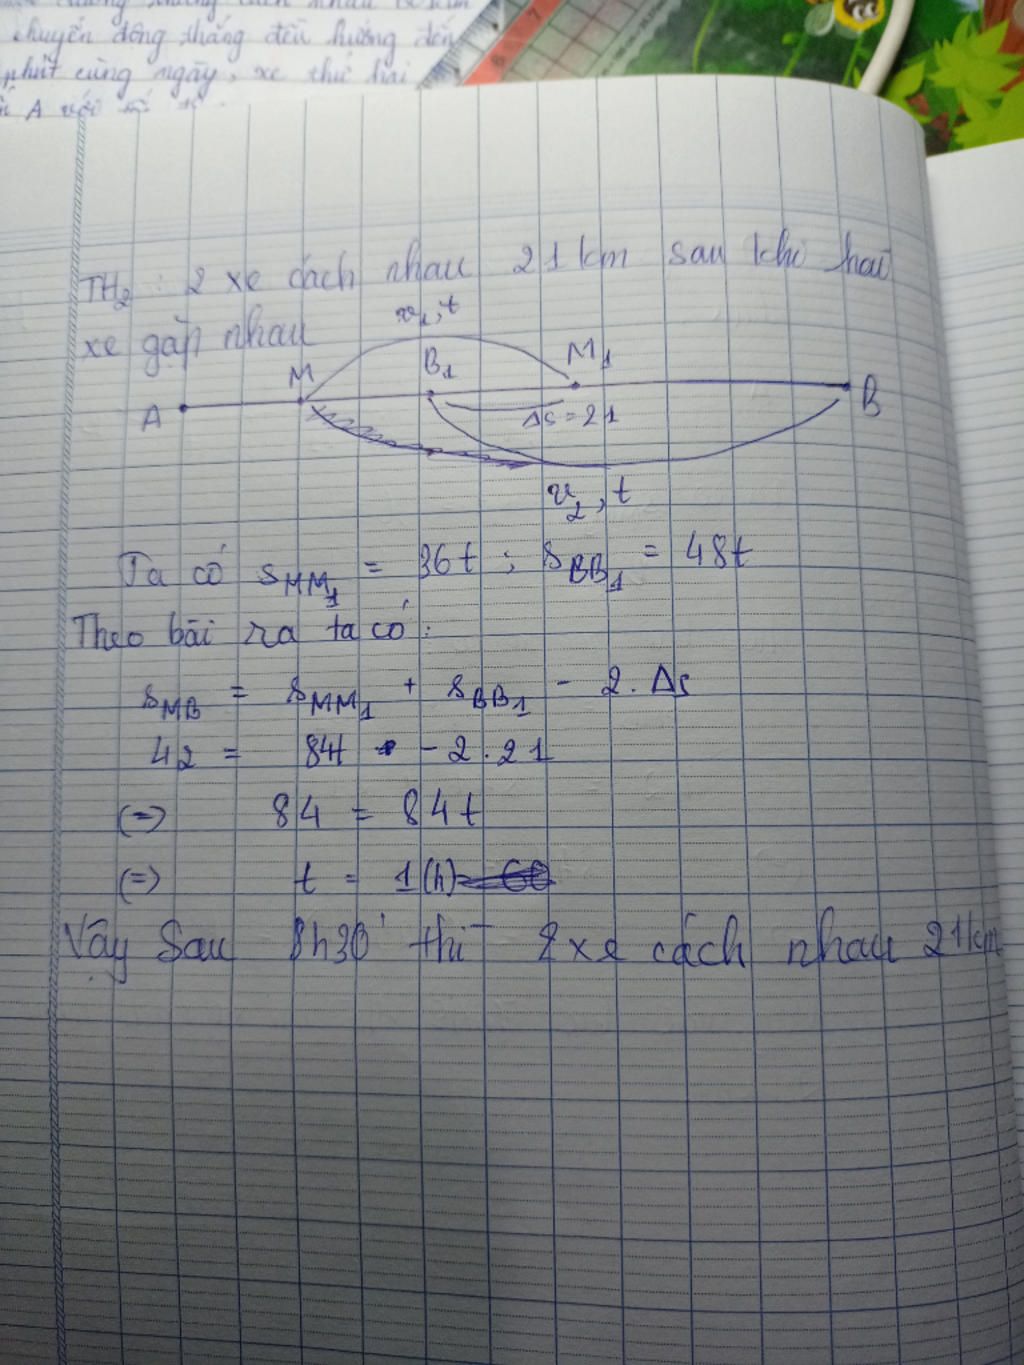 chuyển động thẳng đều hướng đến
phút cùng ngày, xe thứ hai
A với
7
6
TH2: 2 xe cách nhau 21km sau khi hai
xe gặp nhau
v1, t
A M B1 M1 B
Δs = 21
v2, t
Ta có sMM1 = 36t ; sBB1 = 48t
Theo bài ra ta có:
sMB = sMM1 + sBB1 - 2. Δs
42 = 84t - 2.21
(=) 84 = 84t
(=) t = 1(h)
Vậy sau 8h30' thì 2 xe cách nhau 21km